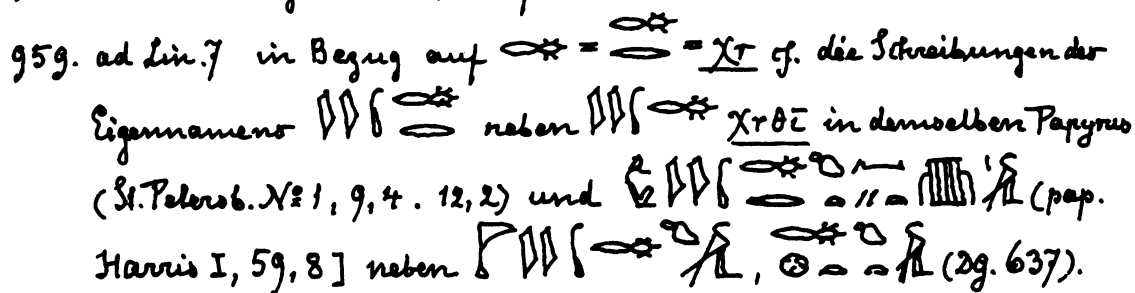 959. ad Lin. 7 in Bezug auf = = χr cf. die Schreibungen des
Eigennamens neben χrθī in demselben Papyrus
(St. Petersb. № 1, 9, 4. 12, 2) und (pap.
Harris I, 59, 8] neben , (Dg. 637).